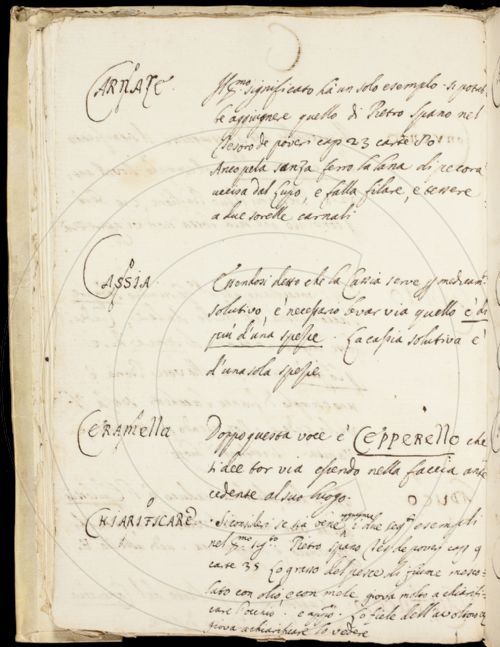 C
CARNALE Il pmo significato ha un solo esempio. si potreb-
be aggiugnere quello di Pietro Spano nel
Tesoro de poveri cap 23 carte 80
Anco pela sanza ferro la lana di pecora
uccisa dal Lupo, e falla filare, e tessere
a due sorelle carnali
CASSIA Essendosi detto che la Cassia serve p medicam
solutivo, è necessario levar via quello è di
piu d'una spezie. La cassia solutiva è
d'una sola spezie
CERAMELLA Doppo questa voce è CEPPERELLO che
si dee tor via essendo nella faccia ante
cedente al suo luogo.
CHIARIFICARE Si consideri se sta bene i due esempli
nel Pietro Spano cap 9
carte 35 Lo grasso del pesce di fiume mesco-
lato con olio e con mele, giova molto a chiarifi-
care l'occhio. e Lo fiele dell'avoltoio
giova a chiarificare lo vedere